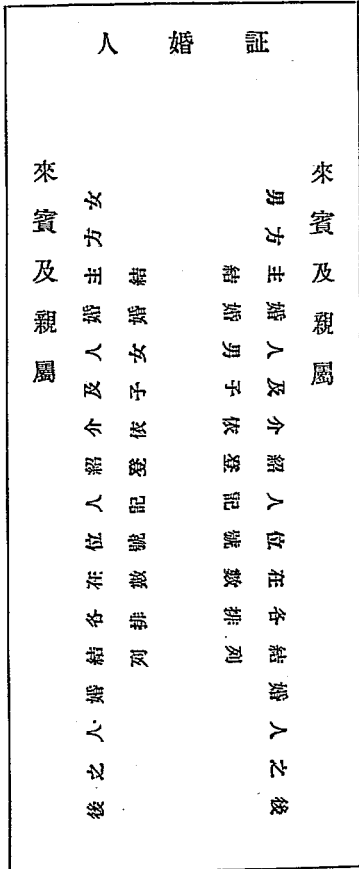 証婚人
來賓及親屬
男方主婚人及介紹人位在各結婚人之後
結婚男子依登記號數排列
結婚女子依登記號數排列
女方主婚人及介紹人位在各結婚人之後
來賓及親屬